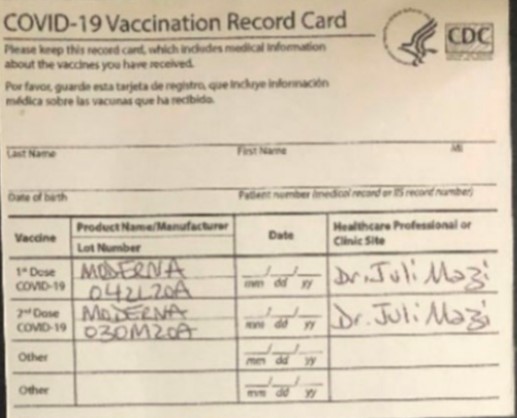 COVID-19 Vaccination Record Card
CDC
Please keep this record card, which includes medical information
about the vaccines you have received.
Por favor, guarde esta tarjeta de registro, que incluye información
médica sobre las vacunas que ha recibido.
Last Name First Name MI
Date of birth Patient number (medical record or IIS record number)
Vaccine Product Name/Manufacturer Date Healthcare Professional or
Lot Number Clinic Site
1st Dose MODERNA Dr. Juli Mazi
COVID-19 042L20A mm dd yy
2nd Dose MODERNA Dr. Juli Mazi
COVID-19 030M20A mm dd yy
Other mm dd yy
Other mm dd yy